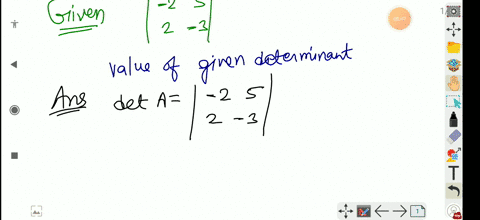 Given | -2 5 |
| 2 -3 |
value of given determinant
Ans det A = | -2 5 |
| 2 -3 |